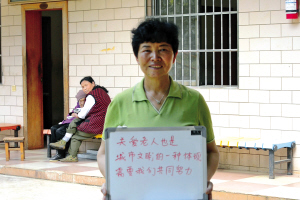 关爱老人也是
城市文明的一种体现
需要我们共同努力